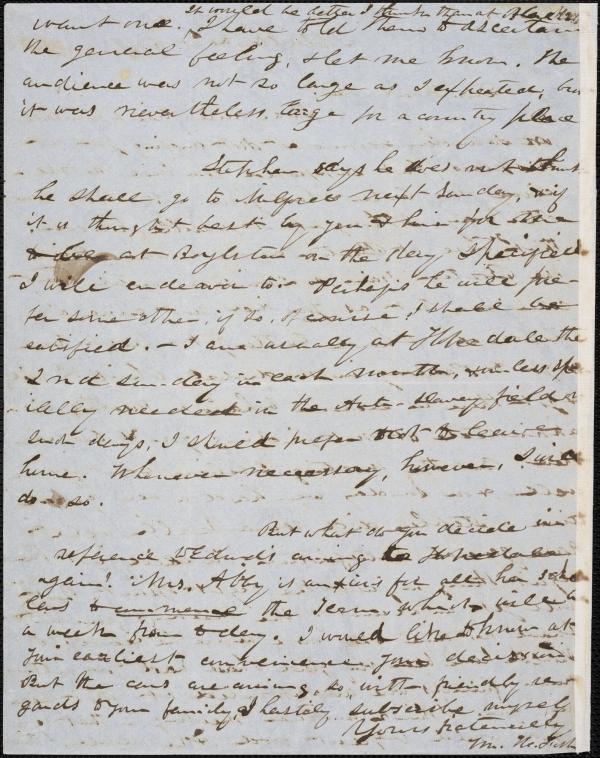 It would be better I think than at
want one. I have told them to ascertain
the general feeling, & let me know. The
audience was not so large as I expected, but
it was nevertheless large for a country place
Stephen says he does not think
he shall go to next Sunday, & if
it is thought best by you & him for
at Boylston on the day specified
I will endeavor to. Perhaps he will pre-
fer some other, if so, of course, I shall be
satisfied. – I am usually at Hopedale the
2nd Sunday in each month, & unless spe
cially needed in the Anti-Slavery field on
such days, I should prefer not to leave
home. Whenever necessary, however, I will
do so.
But what do you decide in
reference to Edward's coming to Hopedale
again? Mrs. Abby is anxious for all her scho
lars to commence the Term, which will be
a week from to-day. I would like to know at
your earliest convenience your decision
But the cars are coming, so, with friendly re-
gards to your family, I hastily subscribe myself
Yours fraternally
Wm. H. Fish